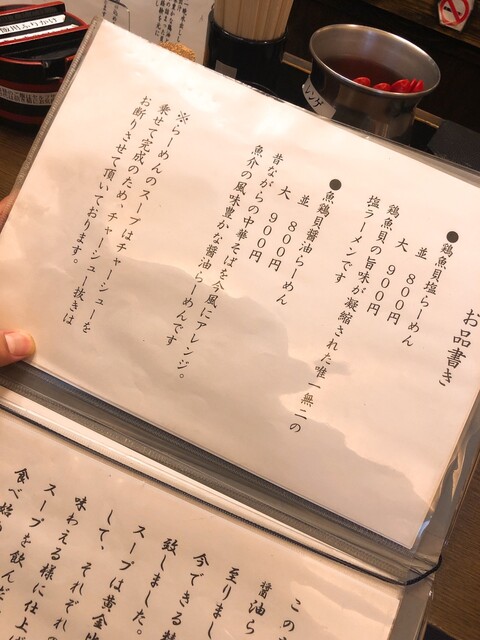 お品書き
●鶏魚貝塩らーめん
並 800円
大 900円
鶏魚貝の旨味が凝縮された唯一無二の
塩ラーメンです
●魚鶏貝醤油らーめん
並 800円
大 900円
昔ながらの中華そばを今風にアレンジ。
魚介の風味豊かな醤油らーめんです
※らーめんのスープはチャーシューを
乗せて完成のため、チャーシュー抜きは
お断りさせて頂いております。
この
醤油ら
至りまし
今できる
致しました。
スープは黄金
して、それぞれの
味わえる様に仕上
スープを飲んだ
食べ
レンゲ